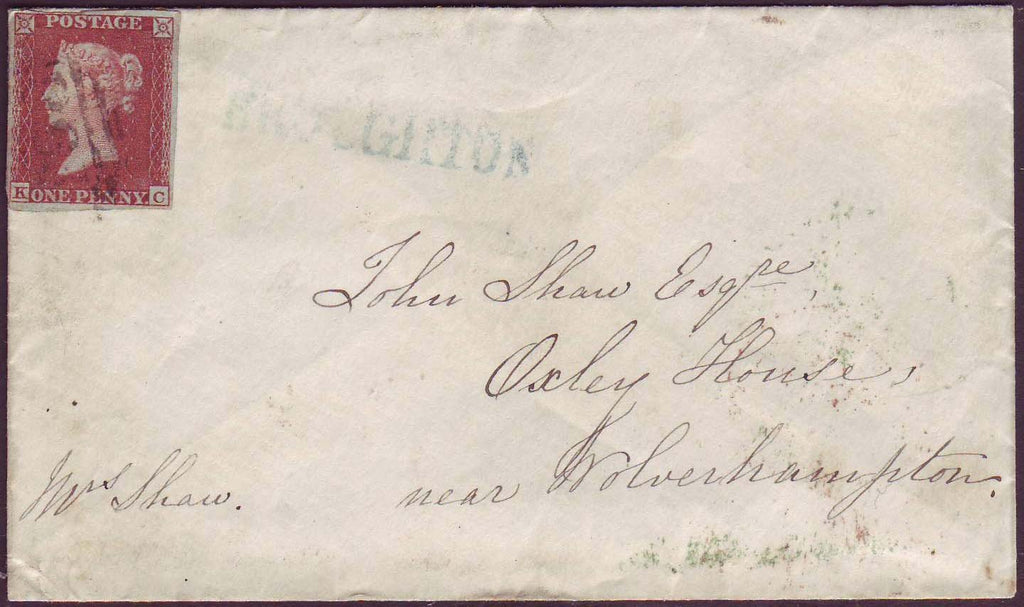 POSTAGE
K ONE PENNY. C
John Shaw Esqre,
Oxley House,
near Wolverhampton.
Mrs Shaw.